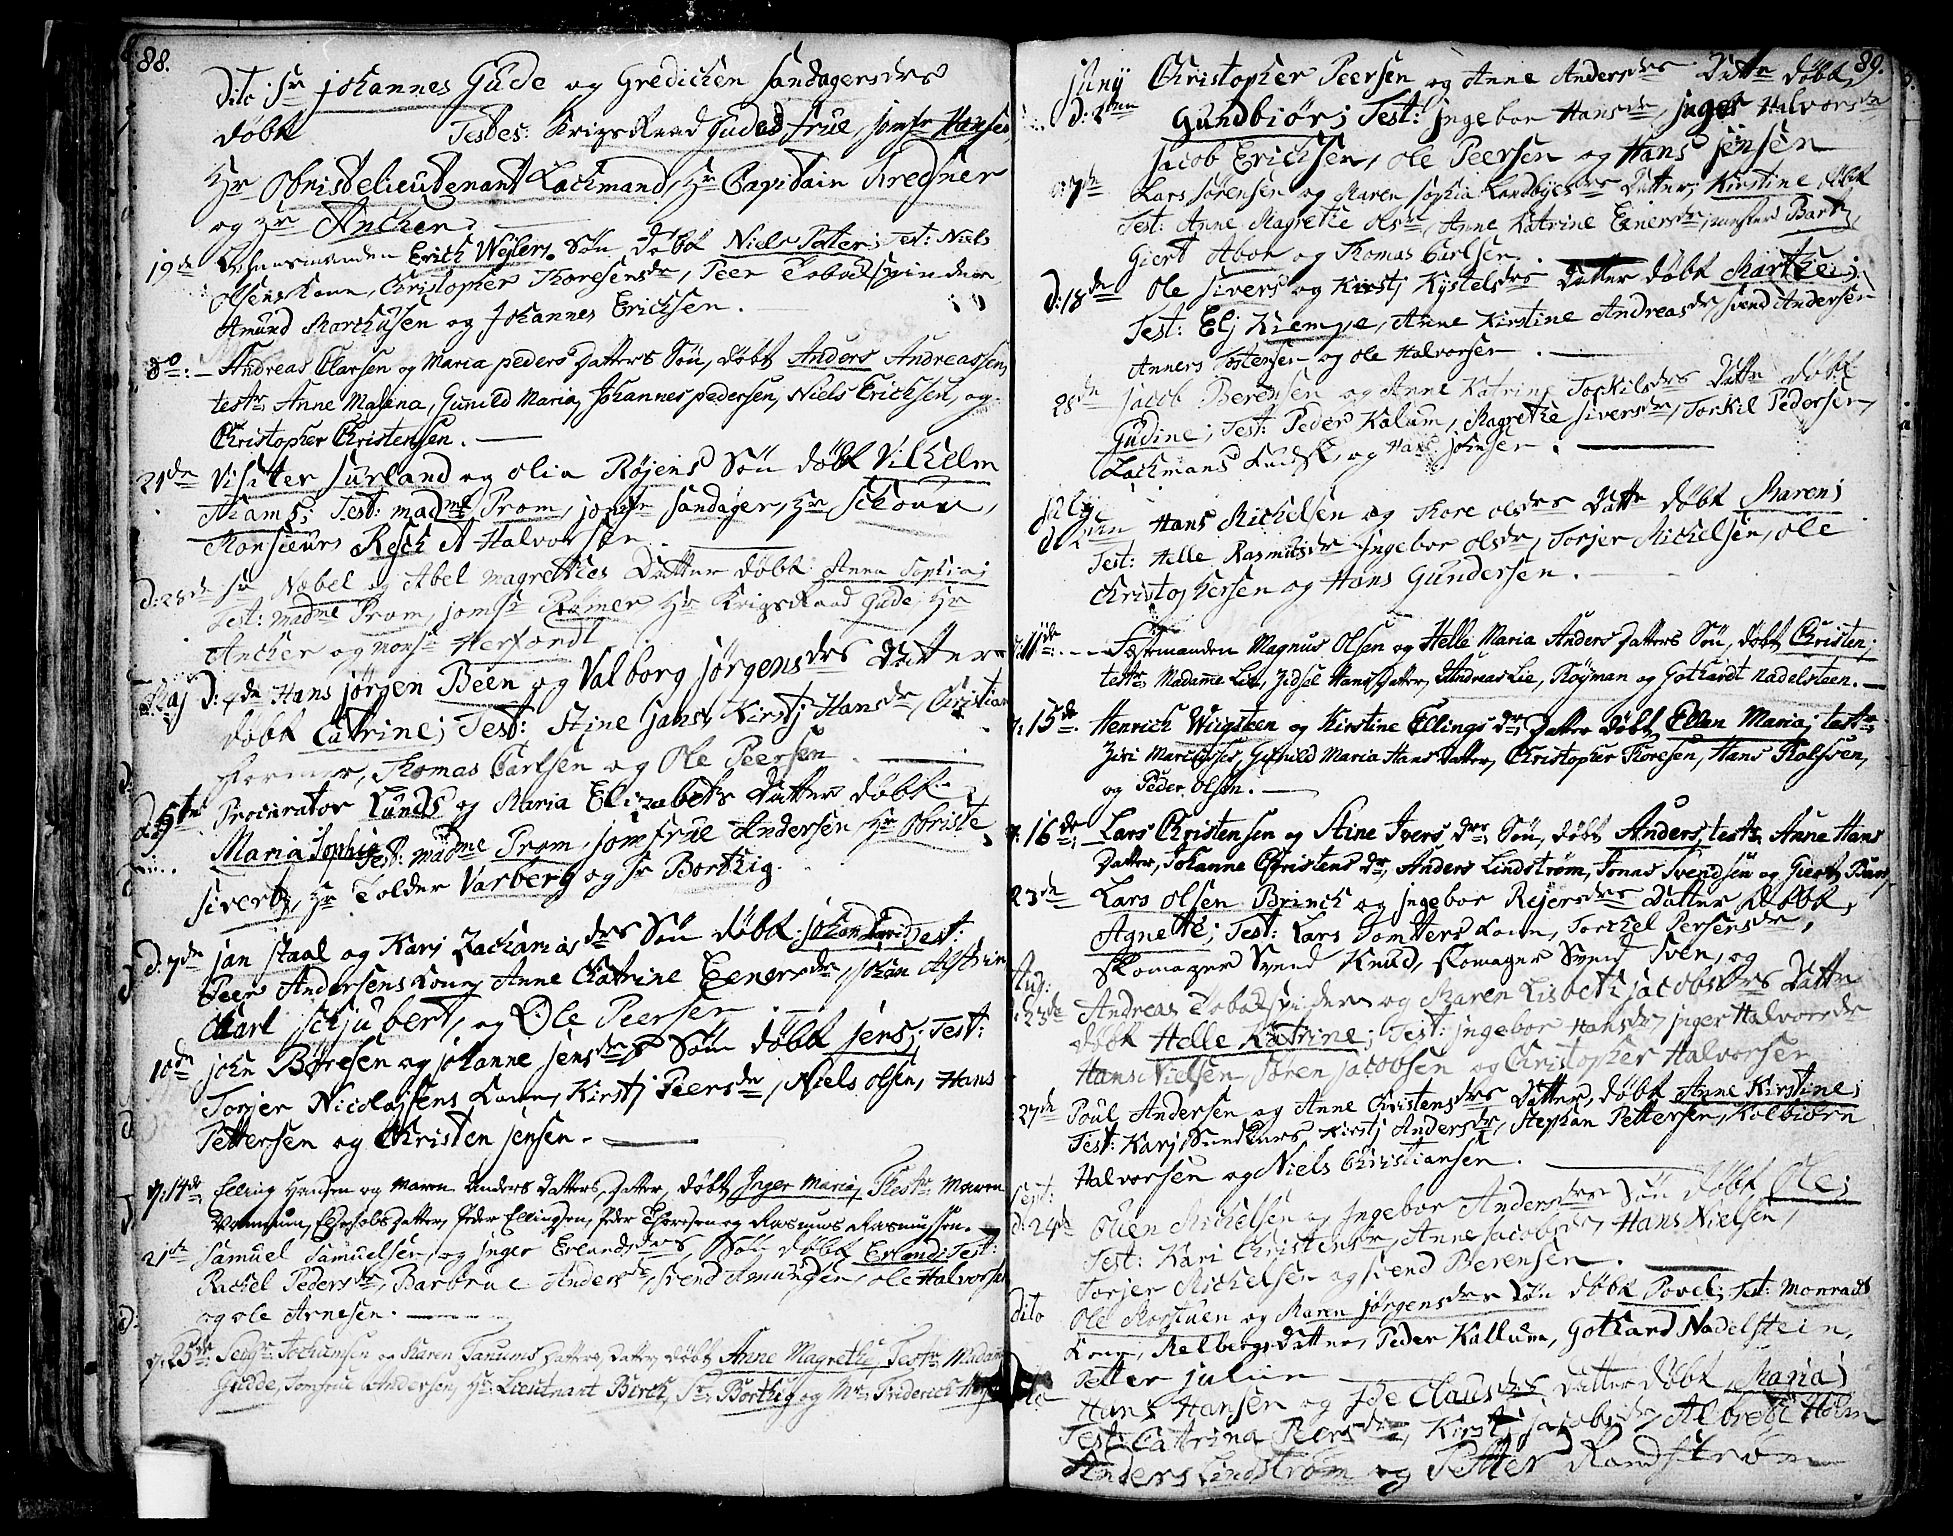 88.
Dito Sr Johannes Gude og Gredichen Sandagersdrs
døbt Testes: Krigsraad Gudes frue, jomfr Hansen,
Hr Obristelieutenant Lachmand, Hr Capitain Kregner
og Hr Ancher.
19de Erich Weylers Søn døbt Niels Peter; Test: Niels
Olsens Kone, Christopher Thoresensdr, Peer Tobakspinder,
Amund Marchusen og Johannes Erichsen.
do: Andreas Clarsen og Maria peders Datters Søn, døbt Anders Andreassen,
testr Anne Malena, Gunild Maria, Johannes pedersen, Niels Erichsen, og
Christopher Christensen.
21de Visiter Surland og Olia Røjens Søn døbt Vilhelm
Adams; Test: madme Prom, jomfr Sandager, Hr Schouw,
Monsieurs Resch & Halvorsen.
d: 28de Sr Nobel og Abel Magrethes Datter døbt Anna Sophia;
Test: madme Prom, jomfr Rømer, Hr Krigsraad Gude, Hr
Ancher og mons Herfordt
Maj d: 4de Hans Jørgen Been og Valborg Jørgensdrs Datter
døbt Catrine; Test: Stine Jans, Kirstj Hansdr, Christian
Former, Thomas Carlsen og Ole Peersen.
d: 5te Procurator Lunds og Maria Elizabets Datter døbt
Maria Sophia Test: madme Prom, jomfrue Andersen, Hr Obriste
Sivertz, Hr Tolder Varberg og Sr Borthig.
d: 7de Jan Staal og Karj Zachariasdrs Søn døbt Johan David Test:
Peer Andersens Kone, Anne Catrine Eenersdr, Johan Alstrin
Carl Schjubert, og Ole Peersen
10de John Børesen og Johanne Jensdrs Søn døbt Jens; Test:
Torjer Nicolajsens Kone, Kirstj Peersdr, Niels Olsen, Hans
Pettersen og Christen Jensen.
d: 14de Elling Hansen og Maren Anders Datters Datter, døbt Inger Maria, Testr Maren
Datter, Peder Ellingsen, Peder Thoresen og Rasmus Rasmussen.
21de Samuel Samuelsen, og Inger Erlandsdrs, Søn døbt Erland; Test:
Rachel Pedersdr, Barbrue Andersdr, Svend Amundsen, Ole Halvorsen
og Ole Arnesen.
d: 25de Jochumsen og Karen Tanums Datters Datter døbt Anne Magrethe, Testr Madame
Gudde, Jomfrue Andersen, Hr Lieutnant Birch, Sr Borthig og Mr Friderich
89.
Junij Christopher Peersen og Anne Andersdrs Dattr døbt,
d: 2den Gundbiør; Test: Ingebor Hansdr, Inger Halvorsdr
Jacob Erichsen, Ole Peersen og Hans Jensen
d: 7de Lars Sørensen og Maren Sophia Landbyesdrs Datter, Kirstine, døbt
Test: Anne Magrethe Olsdr, Anne Katrine Enersdr, Bartz,
Giert Abor og Thomas Carlsen.
d: 18de Ole Sivers og Kirstj Kystelsdrs Datter døbt Marthe;
Test: Elj Kiempe, Anne Kirstine Andreasdr, Svend Andersen
Anners Tostensen og Ole Halvorsen.
28de Jacob Berensen og Anne Katrine Torkilsdrs Dattr døbt
Gudine; Test: Peder Kalum, Magrethe Siversdr, Torkil Pedersen,
Lachmans Kudsk, og Hans Johnsen.
Julj
d: 2den Hans Michelsen og Thore Olsdrs Dattr døbt Maren;
Test: Helle Rasmusdr Ingebor Olsdr, Torjer Michelsen, Ole
Christophersen og Hans Gundersen.
d: 11de Fæstemanden Magnus Olsen og Helle Maria Anders Datters Søn, døbt Christen;
testr, Madame Lie, Zidsel Hans Datter, Andreas Lie, Røyman og Gothardt Nadelsteen.
d: 15de Henrich Wirgsteen og Kirstine Ellings dr; Datter døbt Ellen Maria; testr
Ziri Marcusses, Gunild Maria Hans Datter, Christopher Thoresen, Hans Rolfsen,
og Peder Olsen.
d: 16de Lars Christensen og Stine Ivers drs, Søn, døbt Anders, testr, Anne Hans
Datter, Johanne Christens dr, Anders Lindstrøm, Jonas Svendsen og Giert Bar
23de Lars Olsen Brinch og Ingebor Rejersdrs Datter døbt,
Agnette; Test: Lars Tomters Kone, Torchel Persensdr,
Skomager Svend Knud, Skomager Svend Sven, og
Aug:
d: 23de Andreas Tobakspinders og Maren Lisbeth Jacobsdrs Dattr
døbt Helle Katrine; Test: Ingebor Hansdr, Inger Halvorsdr
Hans Nielsen, Søren Jacobsen og Christopher Halvorsen
27de Poul Andersen og Anne Christensdrs Datter, døbt Anne Kirstine;
Test: Karj Kirstj Andersdr, Stephan Pettersen, Kolbiørn
Halvorsen og Niels Christiansen.
Sept:
d: 24de Ouen Michelsen og Ingebor Andersdrs Søn døbt Ole;
Test: Kari Christensdr, Anne Jacobsdr, Hans Nielsen,
Torjer Michelsen og Svend Berensen.
dito Ole Morstuen og Maren Jørgensdrs Søn døbt Povel; Test: Monrads
Kone, Melbergs Datter, Peder Kallum, Gothard Nadelstein,
Petter Julin
Hans Hansen og Ide Clausdrs Datter døbt Maria;
Test: Cattrina Peersdr, Kirstj Jacobsdr, Albregt Holm
Anders Lindstrøm og Petter Randstrøm